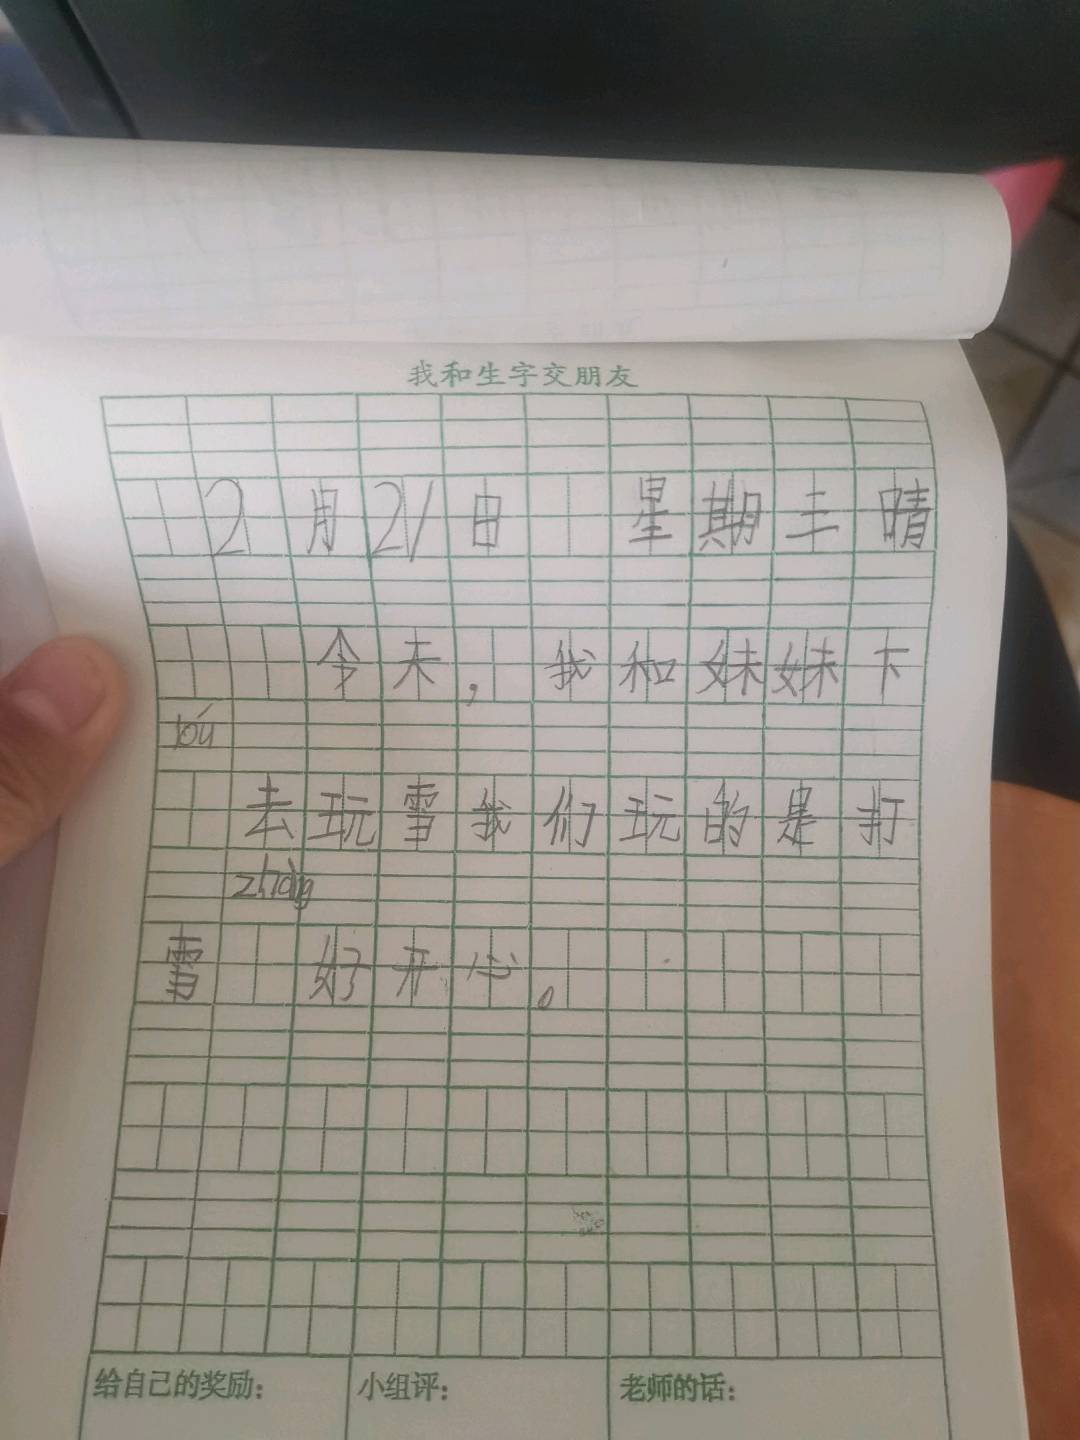 我和生字交朋友
2月21日 星期三 晴
今天，我和妹妹下
lóu
去玩雪我们玩的是打
zhàng
雪 好开心。
给自己的奖励： 小组评： 老师的话：